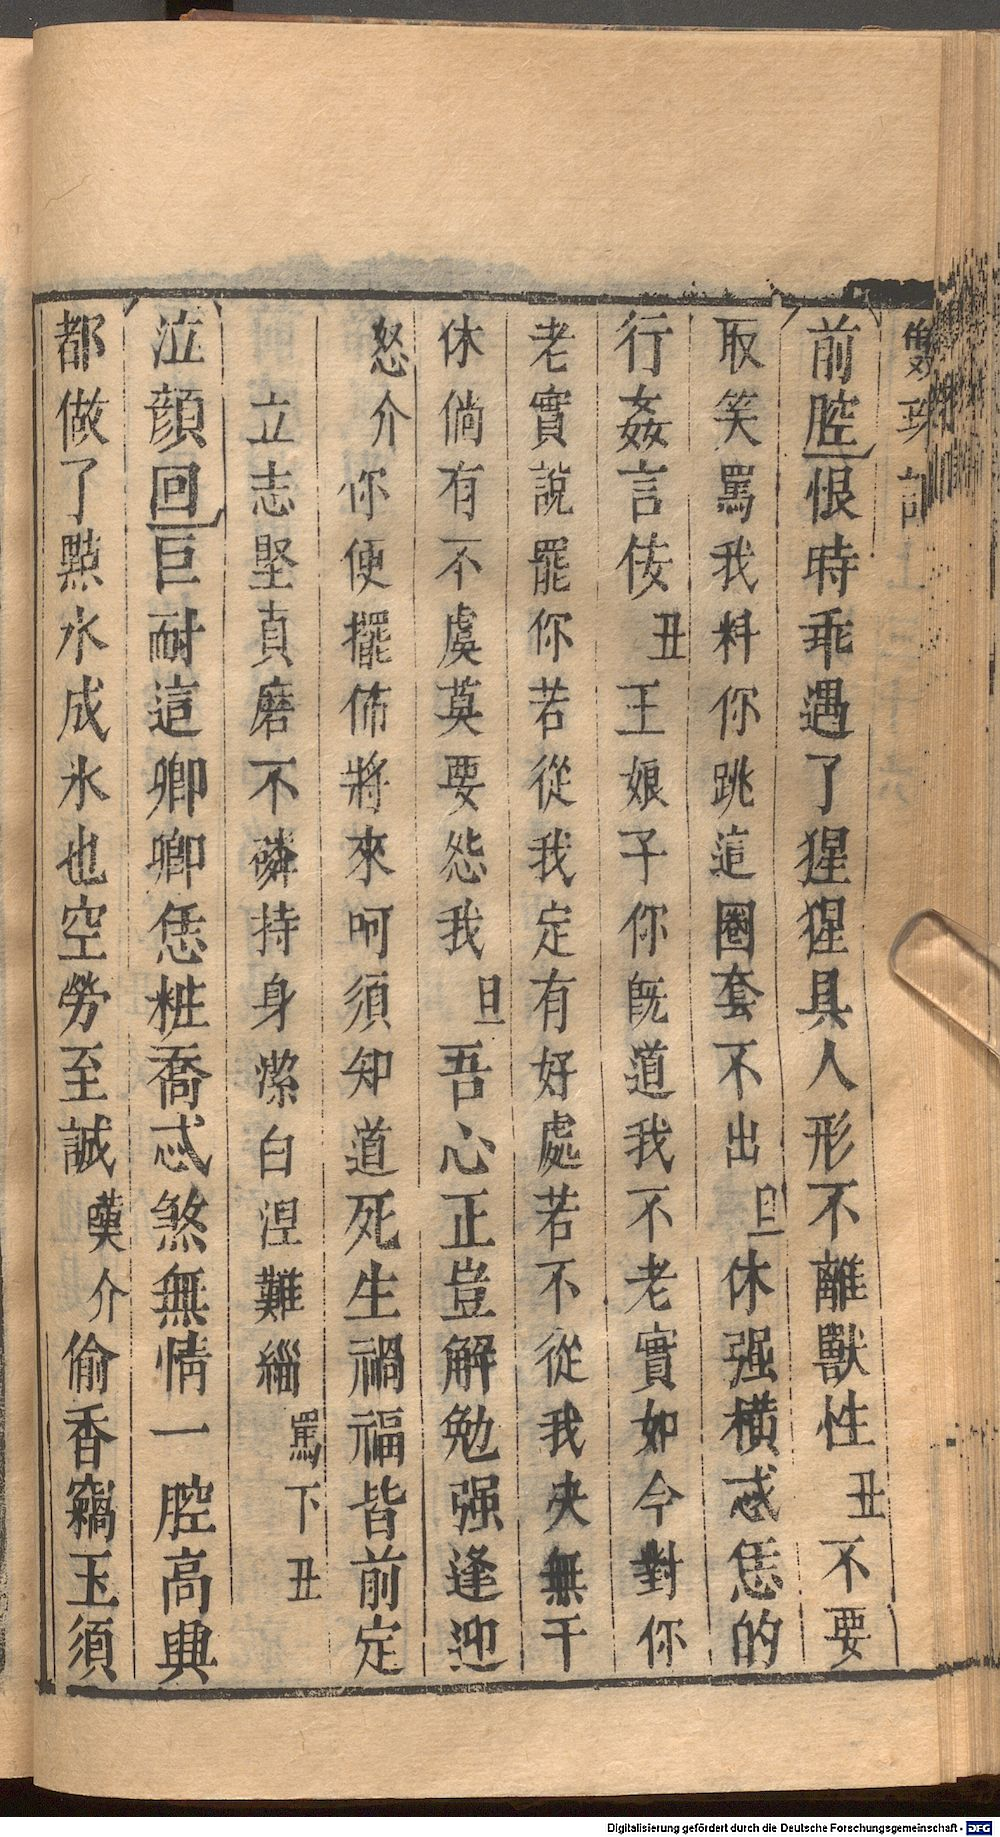 雙珠記
前腔恨時乖遇了猩猩具人形不離獸性丑不要
取笑罵我料你跳這圈套不出旦休强橫忒恁的
行姦言侫丑王娘子你旣道我不老實如今對你
老實說罷你若從我定有好處若不從我决無干
休倘有不虞莫要怨我旦吾心正豈解勉强逢迎
怒介你便擺佈將來呵須知道死生禍福皆前定
立志堅貞磨不磷持身潔白涅難緇罵下丑
泣顔回叵耐這卿卿恁粧喬忒煞無情一腔高興
都做了點水成氷也空勞至誠嘆介偷香竊玉須
Digitalisierung gefördert durch die Deutsche Forschungsgemeinschaft - DFG